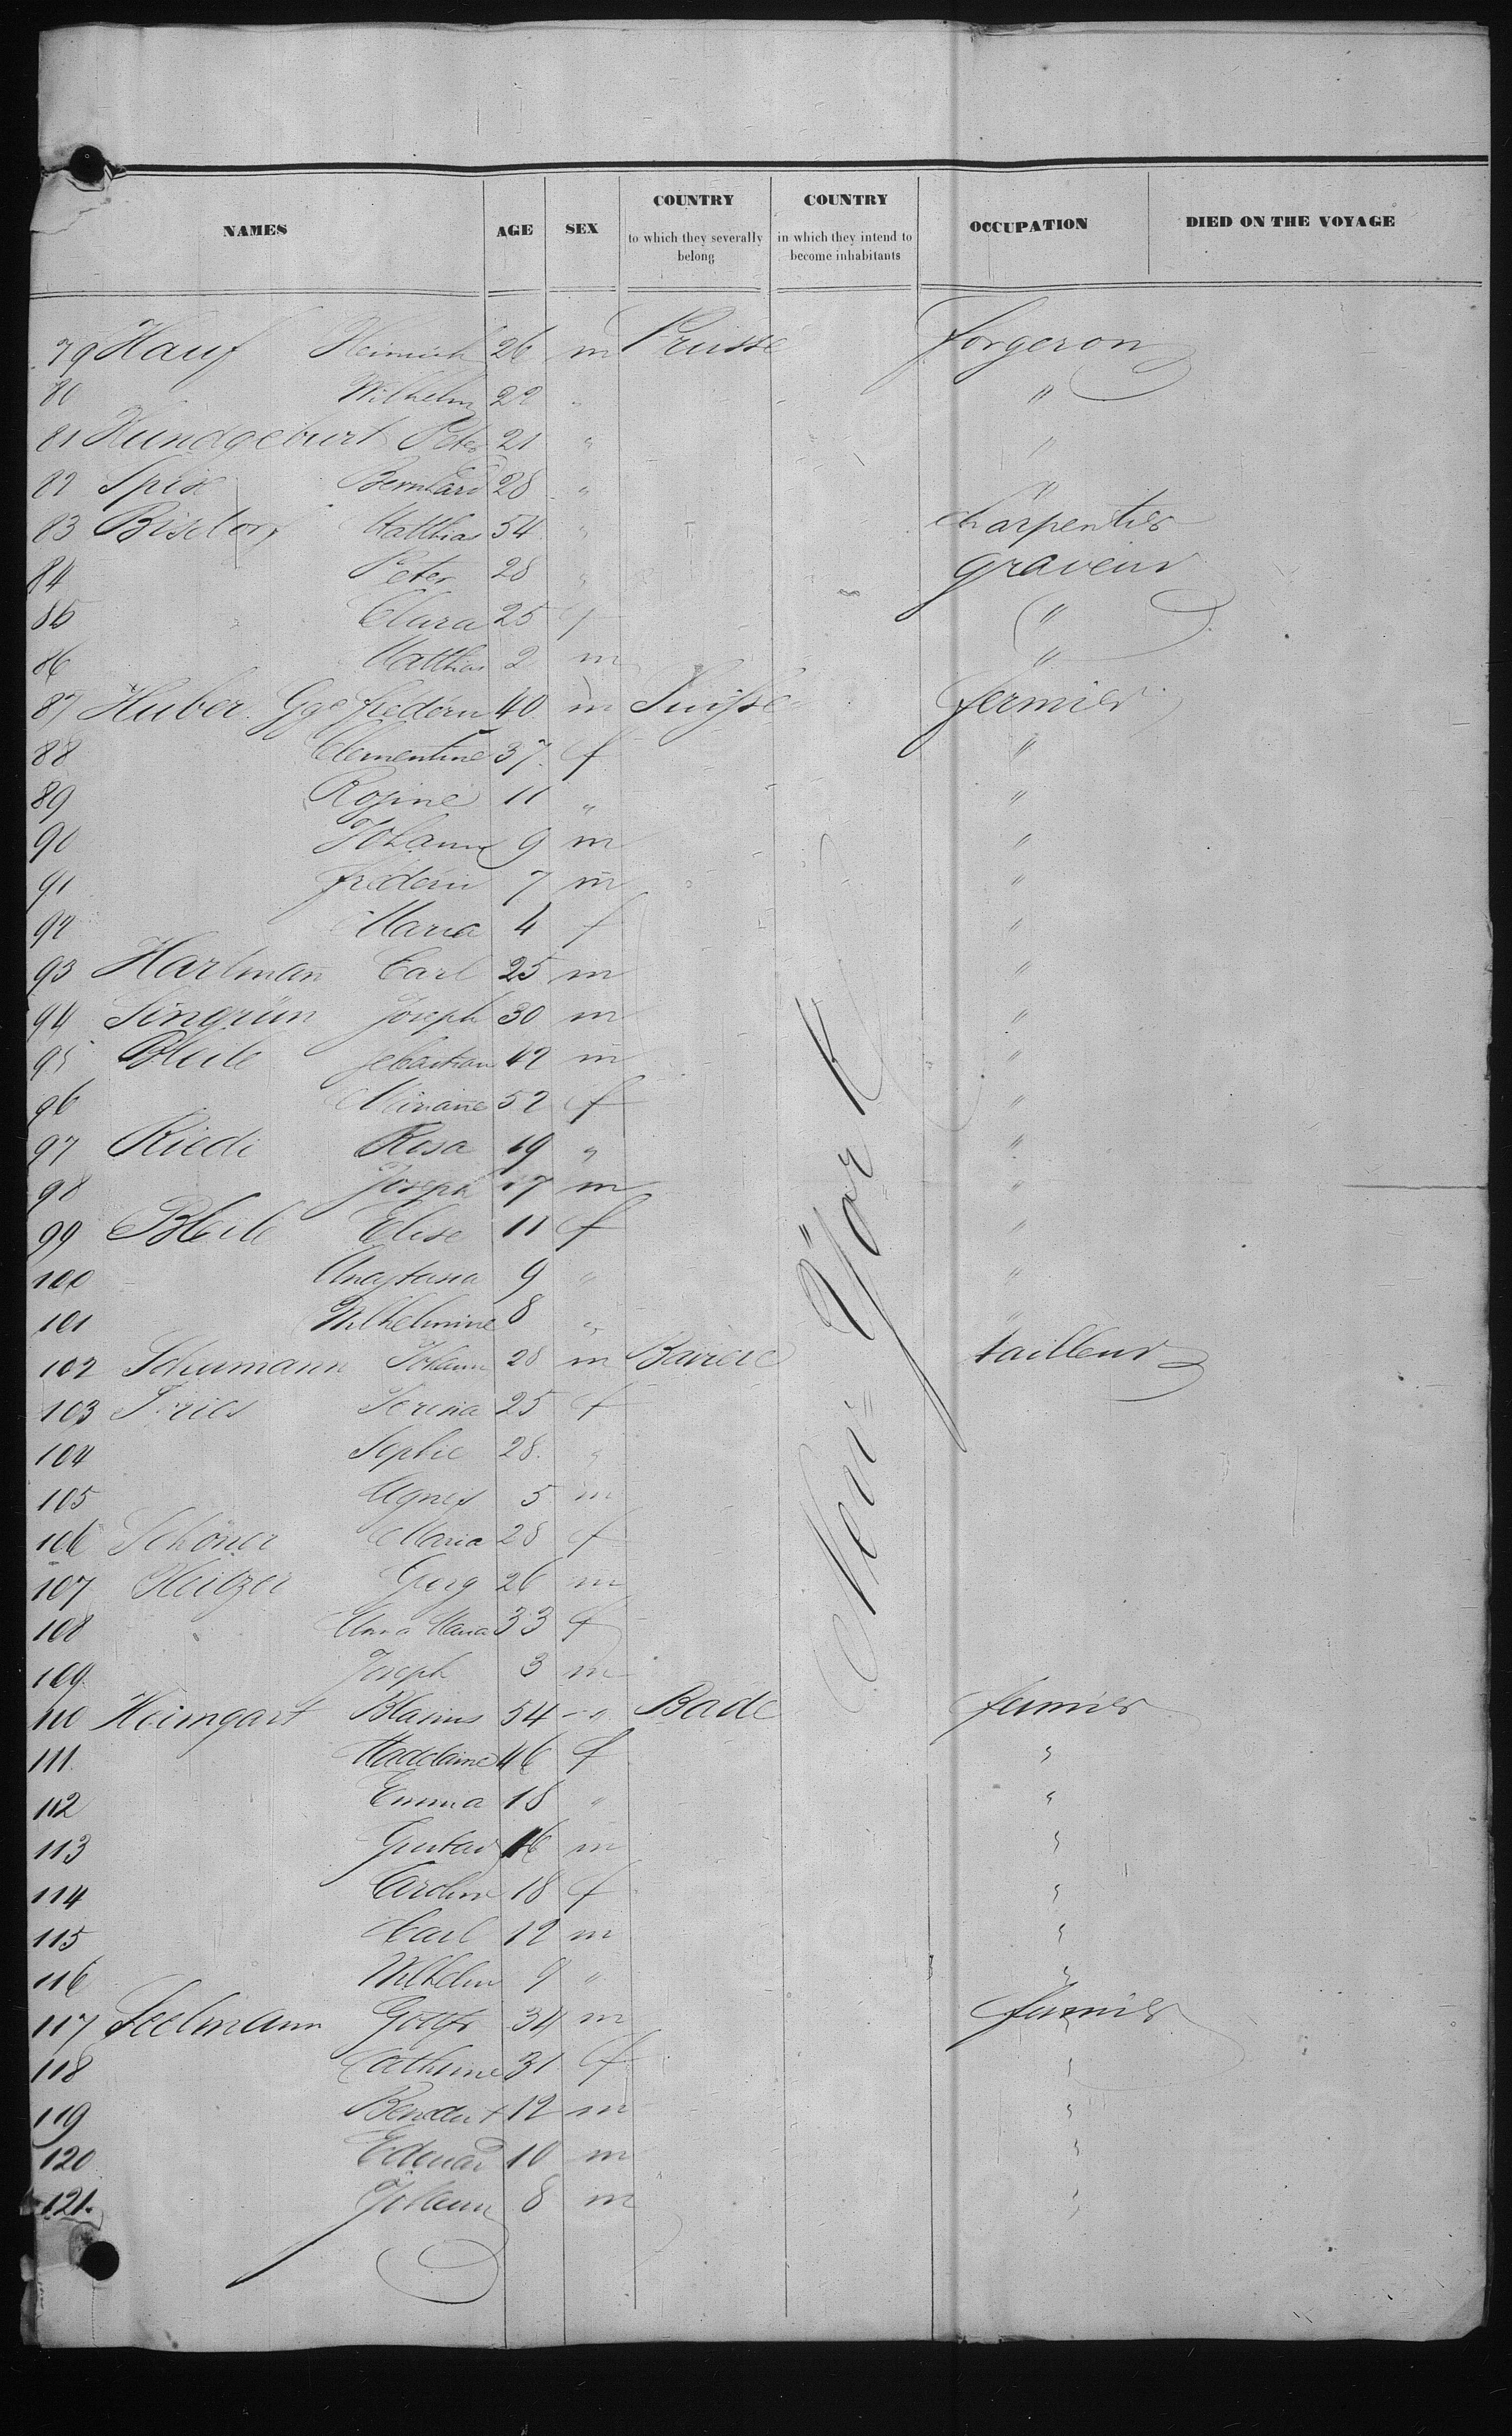 NAMES AGE SEX COUNTRY to which they severally belong COUNTRY in which they intend to become inhabitants OCCUPATION DIED ON THE VOYAGE
79 Hauf Heinrich 26 m Prusse forgeron
80 Wilhelm 22 " "
81 Hundgeburt Peter 21 " "
82 Spix Bernhard 28 " "
83 Bisdorf Matthias 54 " charpentier
84 Peter 28 " graveur
85 Clara 25 f "
86 Matthias 2 m "
87 Huber Gge frederic 40 m Suisse fermier
88 Clementine 37 f "
89 Rosine 11 " "
90 Johann 9 m "
91 frederic 7 m "
92 Maria 4 f "
93 Hartman Carl 25 m "
94 Singrün Joseph 30 m "
95 Bleile Sebastian 42 m "
96 52 f "
97 Riede Rosa 19 " "
98 Joseph 17 m "
99 Bleile Elise 11 f "
100 Anastasia 9 " "
101 Wilhelmine 8 " "
102 Schumann Johann 28 m Baviere tailleur
103 Fries 25 f
104 Sophie 28 "
105 Agnes 5 m
106 Schöner Maria 28 f
107 Georg 26 m
108 Anna Maria 33 f
109 Joseph 3 m
110 Heimgart Blasius 54 " Bade fermier
111 Madelaine 46 f "
112 Emma 18 " "
113 Gustav 16 m "
114 Caroline 18 f "
115 Carl 12 m "
116 Wilhelm 9 " "
117 Seelmann Gottfr 34 m fermier
118 Catherine 31 f "
119 Benedict 12 m "
120 Eduard 10 m "
121. Johann 8 m "
New=York